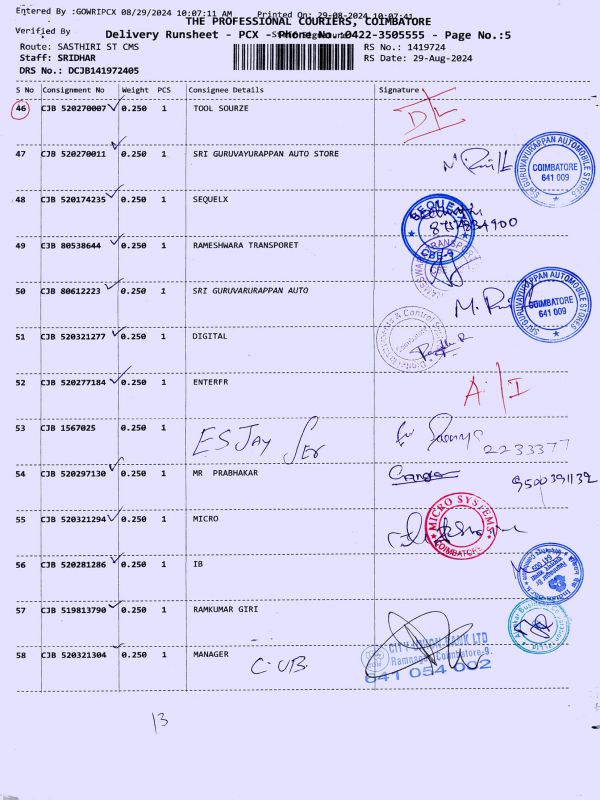 Entered By :GOWRIPCX 08/29/2024 10:07:11 AM Printed On: 29-08-2024 10:07:41
THE PROFESSIONAL COURIERS, COIMBATORE
Verified By
Delivery Runsheet - PCX - Phone No.:0422-3505555 - Page No.:5
Route: SASTHIRI ST CMS RS No.: 1419724
Staff: SRIDHAR RS Date: 29-Aug-2024
DRS No.: DCJB141972405
S No Consignment No Weight PCS Consignee Details Signature
46 CJB 520270007 0.250 1 TOOL SOURZE D/L
47 CJB 520270011 0.250 1 SRI GURUVAYURAPPAN AUTO STORE
SRI GURUVAYURAPPAN AUTOMOBILE STORES
COIMBATORE
641 009
48 CJB 520174235 0.250 1 SEQUELX
49 CJB 80538644 0.250 1 RAMESHWARA TRANSPORET
50 CJB 80612223 0.250 1 SRI GURUVARURAPPAN AUTO
SRI GURUVAYURAPPAN AUTOMOBILE STORES
COIMBATORE
641 009
51 CJB 520321277 0.250 1 DIGITAL
52 CJB 520277184 0.250 1 ENTERFR A/I
53 CJB 1567025 0.250 1 ESJAY
2233377
54 CJB 520297130 0.250 1 MR PRABHAKAR
9500391132
55 CJB 520321294 0.250 1 MICRO
MICRO SYSTEMS
COIMBATORE
56 CJB 520281286 0.250 1 IB
57 CJB 519813790 0.250 1 RAMKUMAR GIRI
58 CJB 520321304 0.250 1 MANAGER C-UB.
CITY UNION BANK LTD
Ramnagar, Coimbatore-9.
641 054 002
13